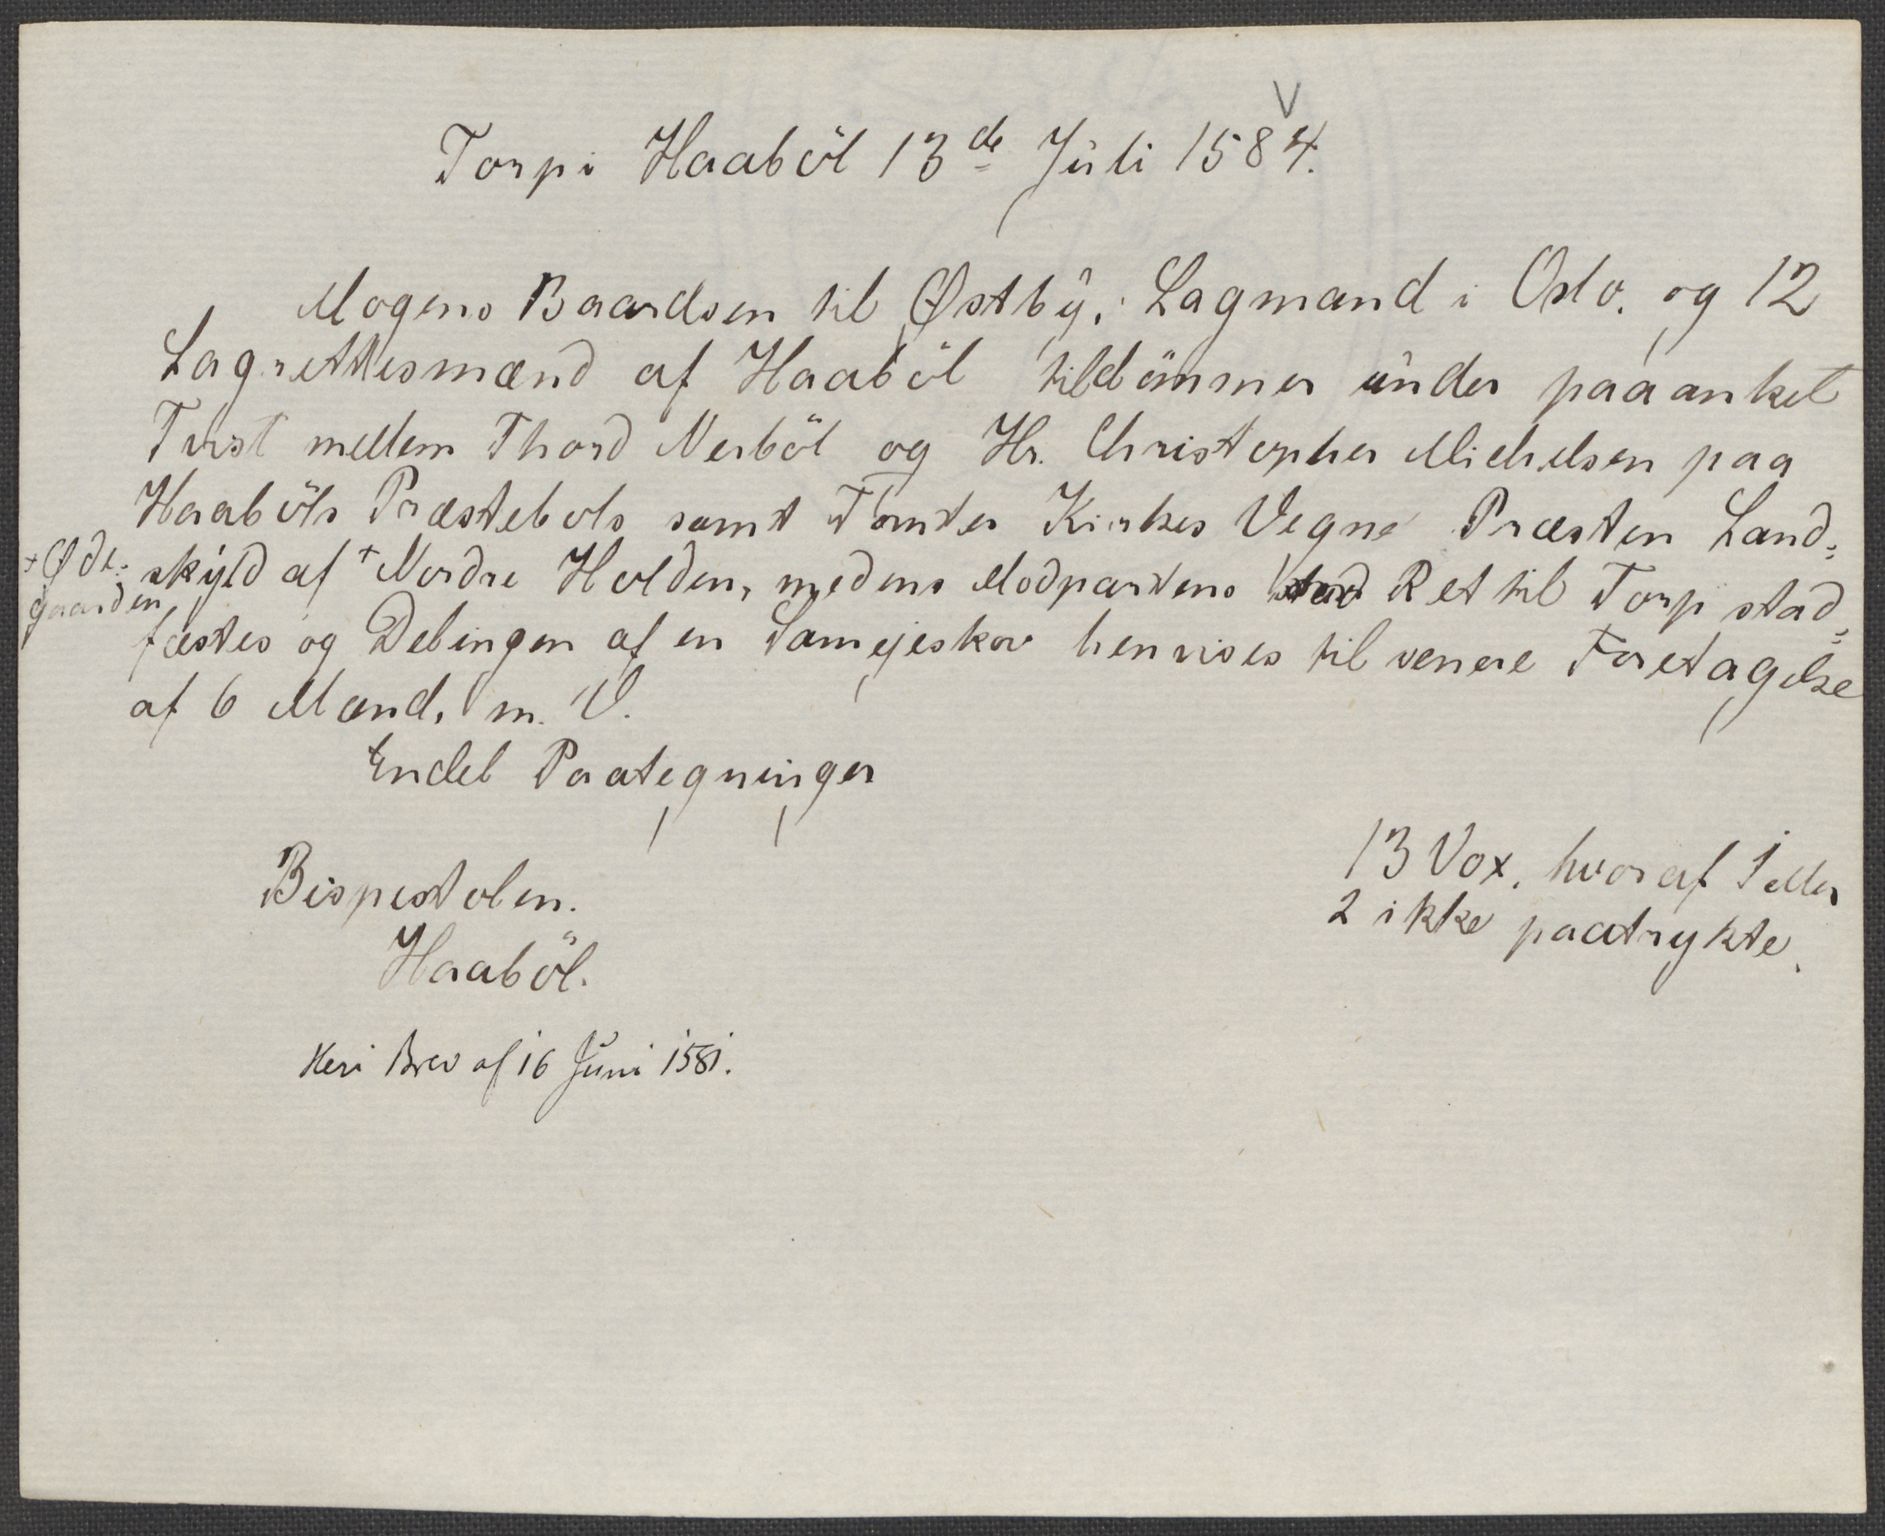 V
Torp i Haaböl 13de Juli 1584.
Mogens Baardsen til Østby, Lagmand i Oslo. og 12
Lagrettesmænd af Haaböl tildömmer under paaanket
Tvist mellem Thord Nerböl og Hr. Christopher Michelsen paa
Haaböls Præstebols samt Tomter Kirkes Vegne Præsten Land-
skyld af + Nordre Holden, medens Modpartens Ret til Torp stad-
+ Øde-
gaarden
fæstes og Delingen af en Samejeskov henvises til senere Foretagelse
af 6 Mænd, m. V.
Endel Paategninger
13 Vox. hvoraf 1 eller
2 ikke paatrykte.
Bispestolen.
Haaböl.
Heri Brev af 16 Juni 1581.